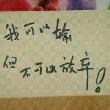 我可以输
但不可以放弃！